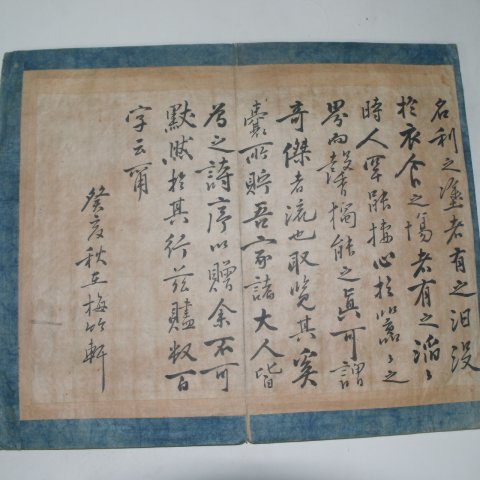 名利之塗者有之汨沒
於衣食之場者有之滔〻
時人罕能捿心於〻之
界而能之眞可謂
奇傑者流也取覽其奚
囊所貯吾家諸大人皆
爲之詩序以贈余不可
默然於其行玆贐数百
字云爾
癸亥秋在梅竹軒